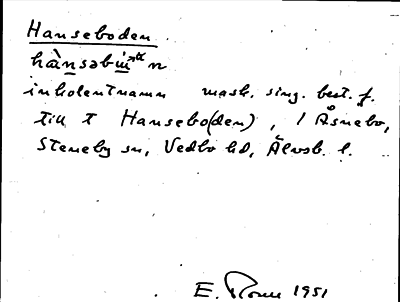 Hanseboden
inkolentnamn mask. sing. best. f.
till t Hansebo(den), i Åsnebo,
Steneby sn, Vedbo hd, Älvsb. l.
E. 1951